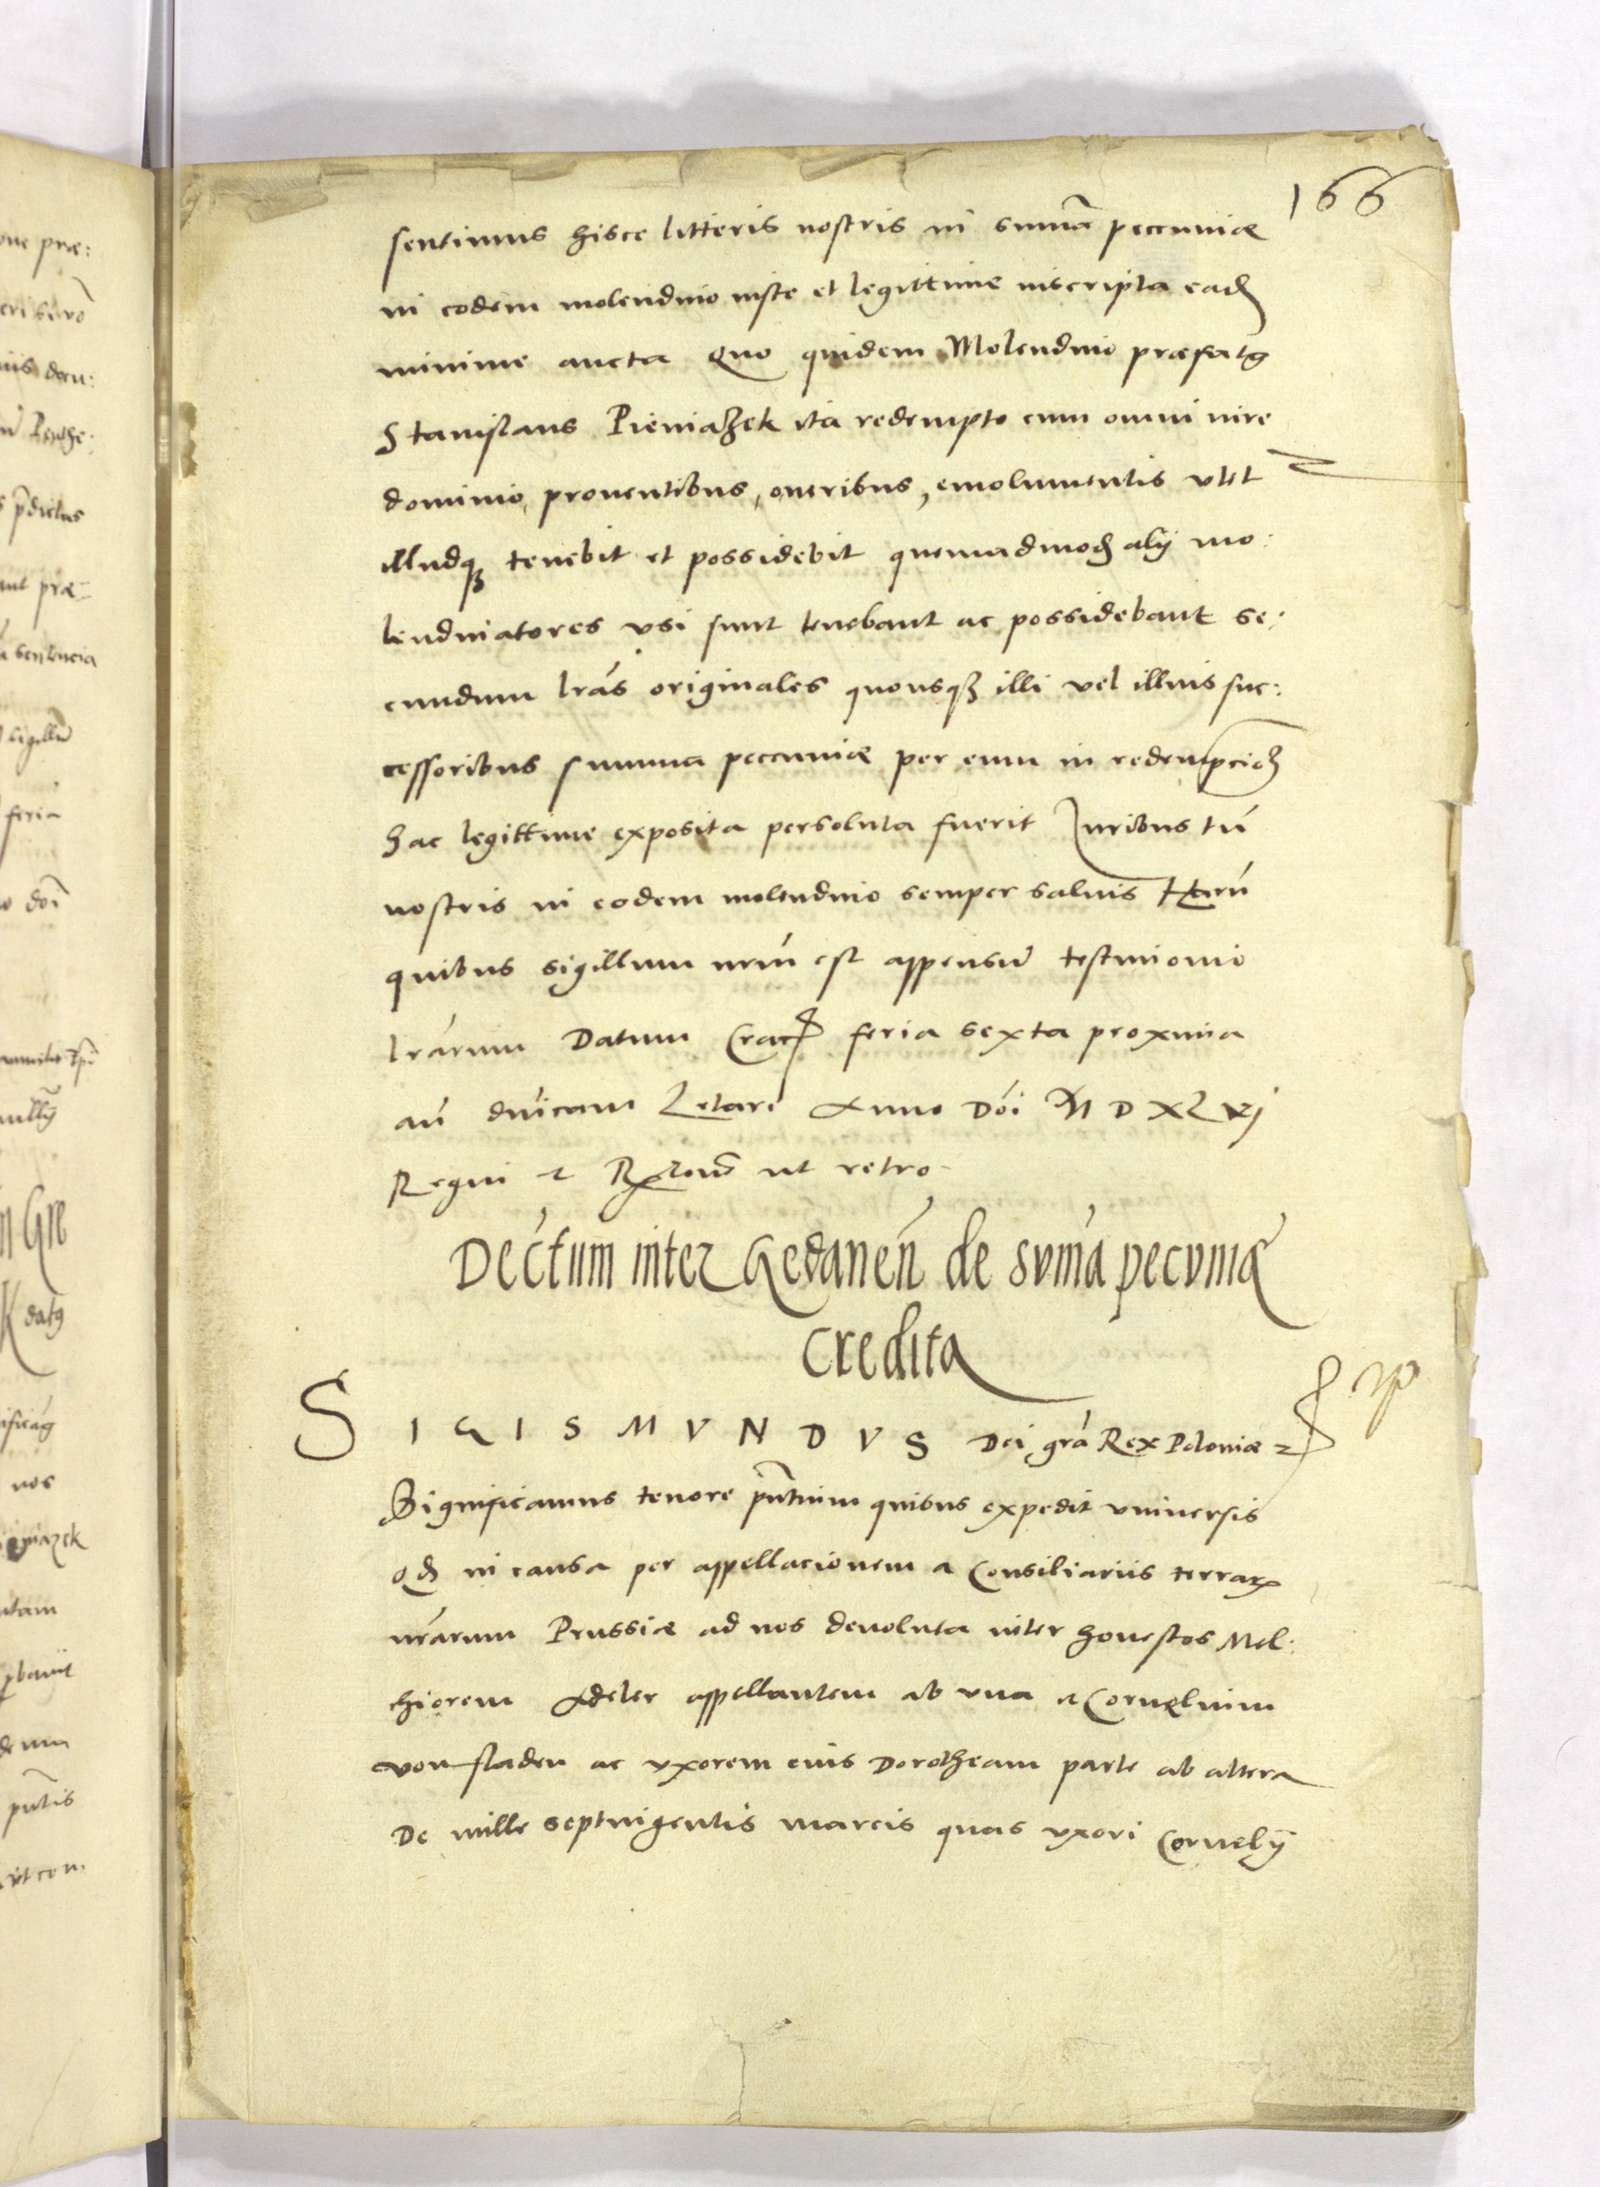 166
sentimus hisce litteris nostris in sum̄a peccuniæ
in eodem molendino iuste et legittime inscripta ead
minime aucta Quo quidem Molendino præfatꝰ
Stanislaus Pieniazek ita redempto cum omni iure
dominio, proventibus, oneribus, emolumentis utet
illudqꝫ tenebit et possidebit quemadmod alij mo:
lendinatores vsi sunt tenebant ac possidebant se:
cundum lrás originales quousqꝫ illi vel illius suc:
cessoribus summa peccuniæ per eum in redempcioē
hac legittime exposita persoluta fuerit Juribus tn̄
nostris in eodem molendino semper saluis Harū
quibus sigillum nrūm est appensū testimonio
lrárum Datum Crac feria sexta proxima
an̄ dnīcam Letare Anno Dōi M D XLvj
Regni ꝛ Rꝑlonē ut retro
Decr̄tum inter Gedanen̄ de sum̄a pecuniæ
credita
SIGISMVNDVS Dei grā Rex Poloniæ ꝛ
Significamus tenore pn̄tium quibus expedit vniuersis
qd in causa per appellacionem a Consiliariis terraꝝ
nrārum Prussiæ ad nos deuoluta inter honestos Mel:
chiorem Adeler appellantem ab vna et Cornelium
von staden ac vxorem eius Dorotheam parte ab altera
De mille septuigentis marcis quas vxori Cornelij